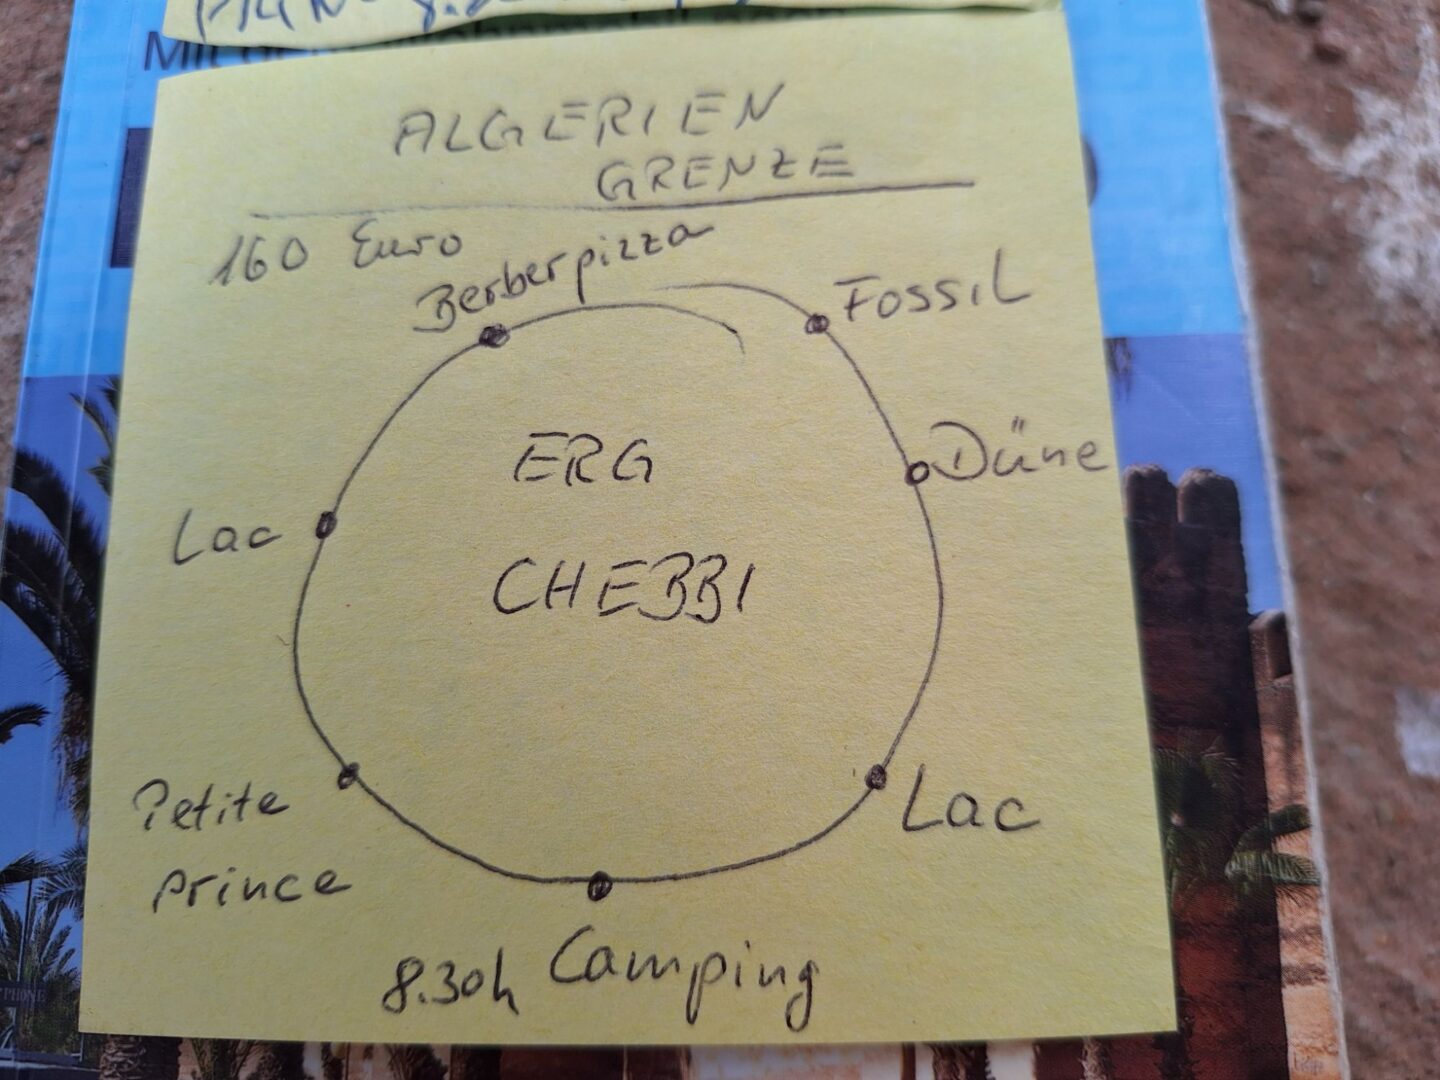 ALGERIEN
GRENZE
160 Euro
Berberpizza
Fossil
ERG
Düne
Lac
CHEBBI
Petite
prince
Lac
8.30h Camping
PHONE